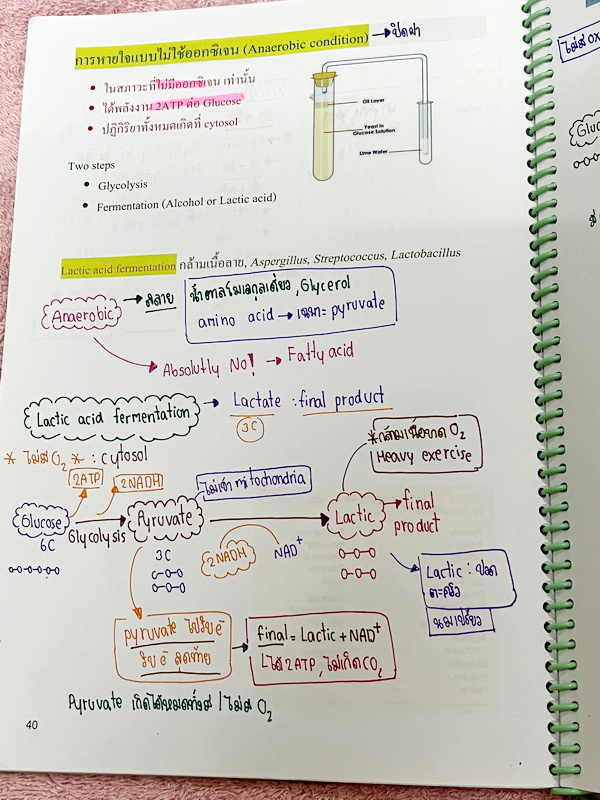 การหายใจแบบไม่ใช้ออกซิเจน (Anaerobic condition) → ปิดฝา
ไม่มี OX
• ในสภาวะที่ไม่มีออกซิเจน เท่านั้น
• ได้พลังงาน 2ATP ต่อ Glucose
• ปฏิกิริยาทั้งหมดเกิดที่ cytosol
Oil Layer
Yeast in
Glucose Solution
Lime Water
Two steps
• Glycolysis
• Fermentation (Alcohol or Lactic acid)
Lactic acid fermentation กล้ามเนื้อลาย, Aspergillus, Streptococcus, Lactobacillus
Anaerobic → สลาย
น้ำตาลโมเลกุลเดี่ยว, Glycerol
amino acid → เฉพาะ pyruvate
Absolutly No! → Fatty acid
Lactic acid fermentation → Lactate : final product
3C
* ไม่มี O₂ * : cytosol
2ATP 2NADH
ไม่เข้า mitochondria
*กล้ามเนื้อขาด O₂
Heavy exercise
Glucose Glycolysis Pyruvate
6C
3C
2NADH NAD⁺
Lactic → final
product
Lactic : ปวด
ตะคริว
นมเปรี้ยว
pyruvate ไปรับ e⁻
รับ e⁻ สุดท้าย
final = Lactic + NAD⁺
ได้ 2ATP, ไม่เกิด CO₂
Pyruvate เกิดได้หมดทั้งมี / ไม่มี O₂
40